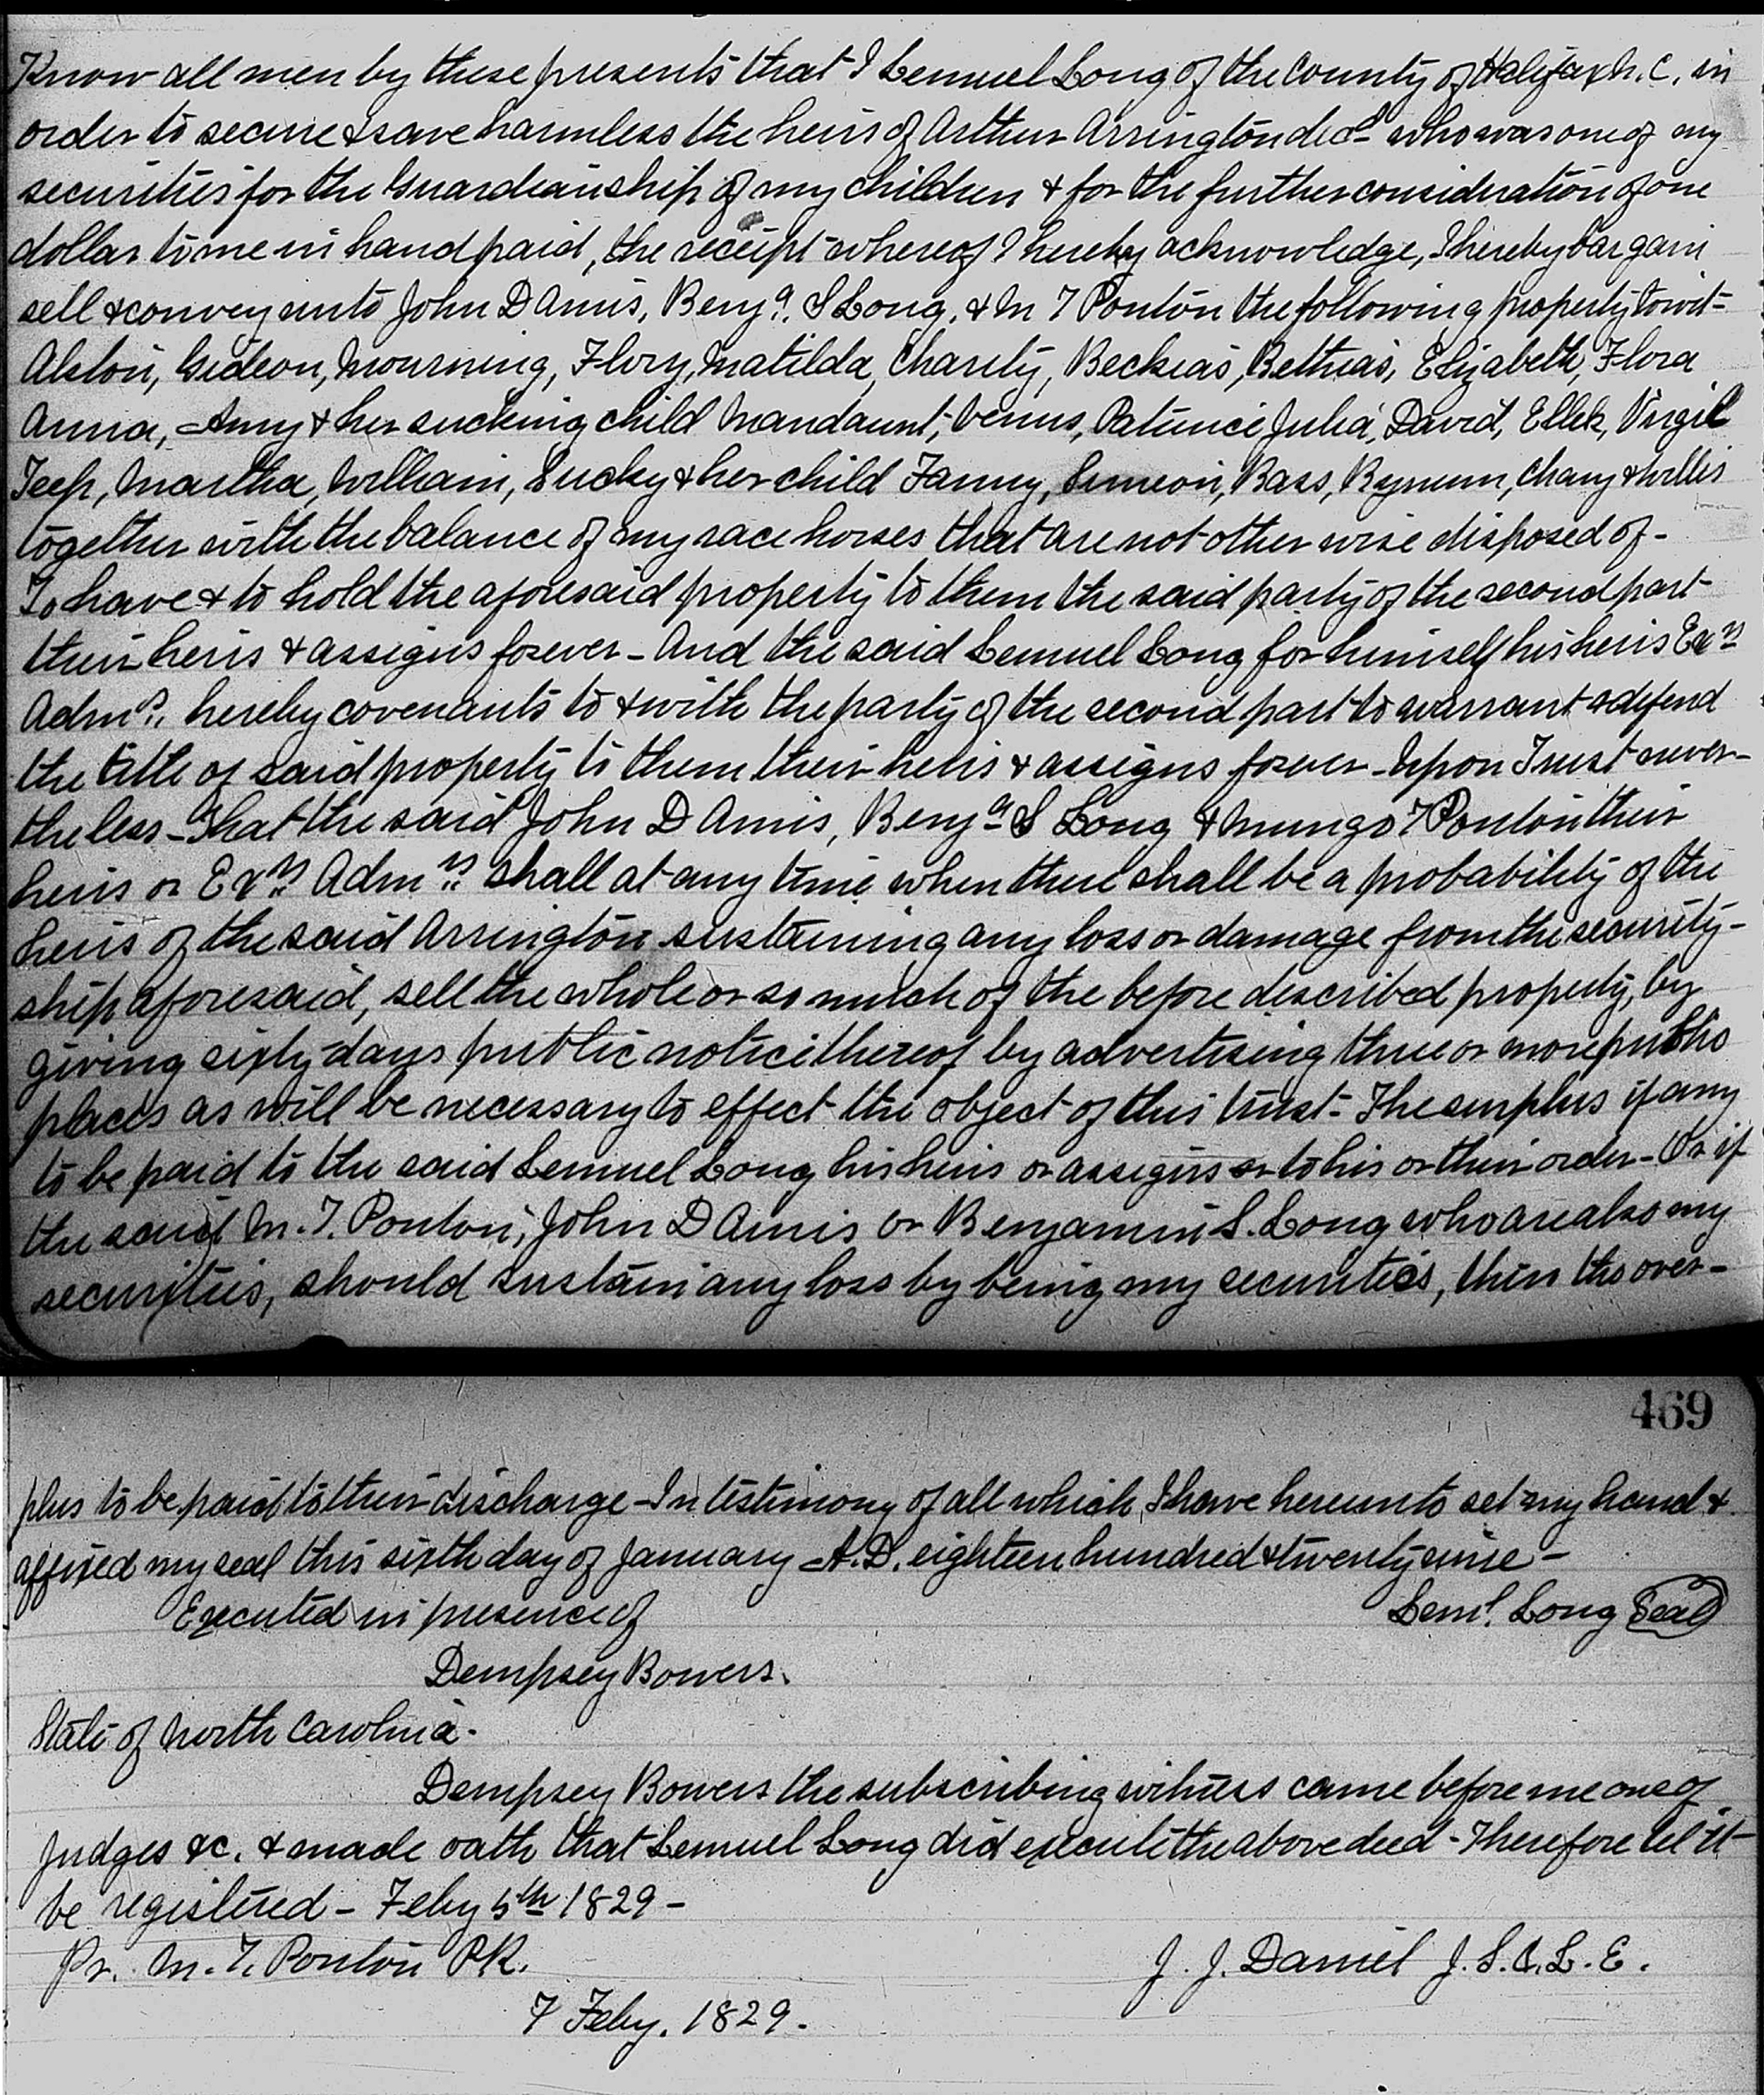 Know all men by these presents that I Lemuel Long of the County of Halifax N. C. in
order to secure & save harmless the heirs of Arthur Arrington decd who was one of my
securities for the Guardianship of my children & for the further consideration of one
dollar to me in hand paid, the receipt whereof I hereby acknowledge, I hereby bargain
sell & convey unto John D Amis, Benja. S Long, & M T Ponton the following property towit-
Alston, Gideon, Mourning, Flory, Matilda, Charity, Beckias, Bethias, Elizabeth, Flora
Anna, Amy & her sucking child Mandaunt, Venus, Patience Julia, David, Ellek, Virgil
Teep, Martha, William, Lucky & her child Fanny, Simeon, Bass, Bynum, Chany & Willis
together with the balance of my race horses that are not otherwise disposed of -
To have & to hold the aforesaid property to them the said party of the second part
their heirs & assigns forever - And the said Lemuel Long for himself his heirs Exrs
Admrs. hereby covenants to & with the party of the second part to warrant & defend
the title of said property to them their heirs & assigns forever - Upon Trust never-
theless - That the said John D Amis, Benja S Long & Mungo T Ponton their
heirs or Exrs. Admrs. shall at any time when there shall be a probability of the
heirs of the said Arrington sustaining any loss or damage from the security-
ship aforesaid, sell the whole or so much of the before described property, by
giving sixty days public notice thereof by advertising three or more public
places as will be necessary to effect the object of this trust - The surplus if any
to be paid to the said Lemuel Long his heirs or assigns or to his or their order - Or if
the said M. T. Ponton, John D Amis or Benjamin S. Long who are also my
securities, should sustain any loss by being my securities, then the over-
469
plus to be paid to their discharge - In testimony of all which, I have hereunto set my hand &
affixed my seal this sixth day of January A. D. eighteen hundred & twenty nine -
Executed in presence of Leml. Long Seal
Dempsey Bowers.
State of North Carolina -
Dempsey Bowers the subscribing witness came before me one of
Judges &c. & made oath that Lemuel Long did execute the above deed - Therefore let it
be registered - Feby 5th 1829 -
Pr. M. T. Ponton P.R. J. J. Daniel J. S. C. L. E.
7 Feby. 1829.